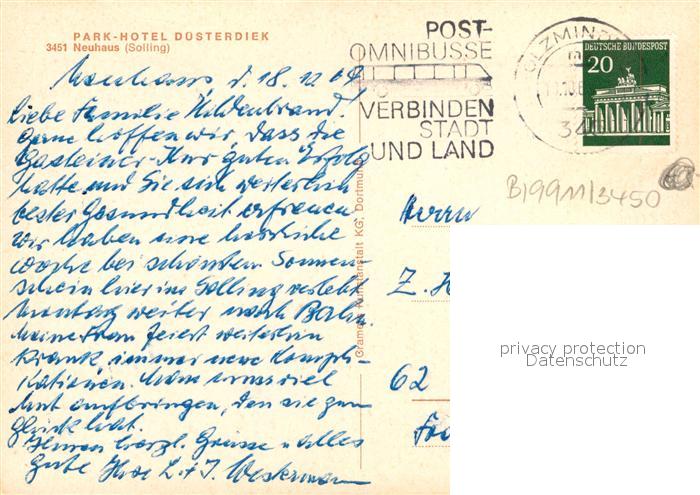 PARK-HOTEL DÜSTERDIEK
3451 Neuhaus (Solling)
POST-
OMNIBUSSE
VERBINDEN
STADT
UND LAND
DEUTSCHE BUNDESPOST
20
Neuhaus, d. 18. 10. 69
Liebe Familie Hildenbrand.
Gerne hoffen wir, dass die
Gasteiner-Kur guten Erfolg
hatte und Sie sich weiterhin
bester Gesundheit erfreuen
Wir haben eine herrliche
Woche bei schönstem Sonnen-
schein hier im Solling verlebt
Montag weiter nach Berlin.
Meine Frau feiert weiterhin
krank, immer neue Kompli-
kationen. Man muss viel
Mut aufbringen, den sie zum
Glück hat.
Ihnen herzl. Grüsse u alles
Gute Ihre L. + J. Westermann
Cramers Kunstanstalt KG, Dortmund
B199M/3450
Herrn
Z. H
62
privacy protection
Datenschutz